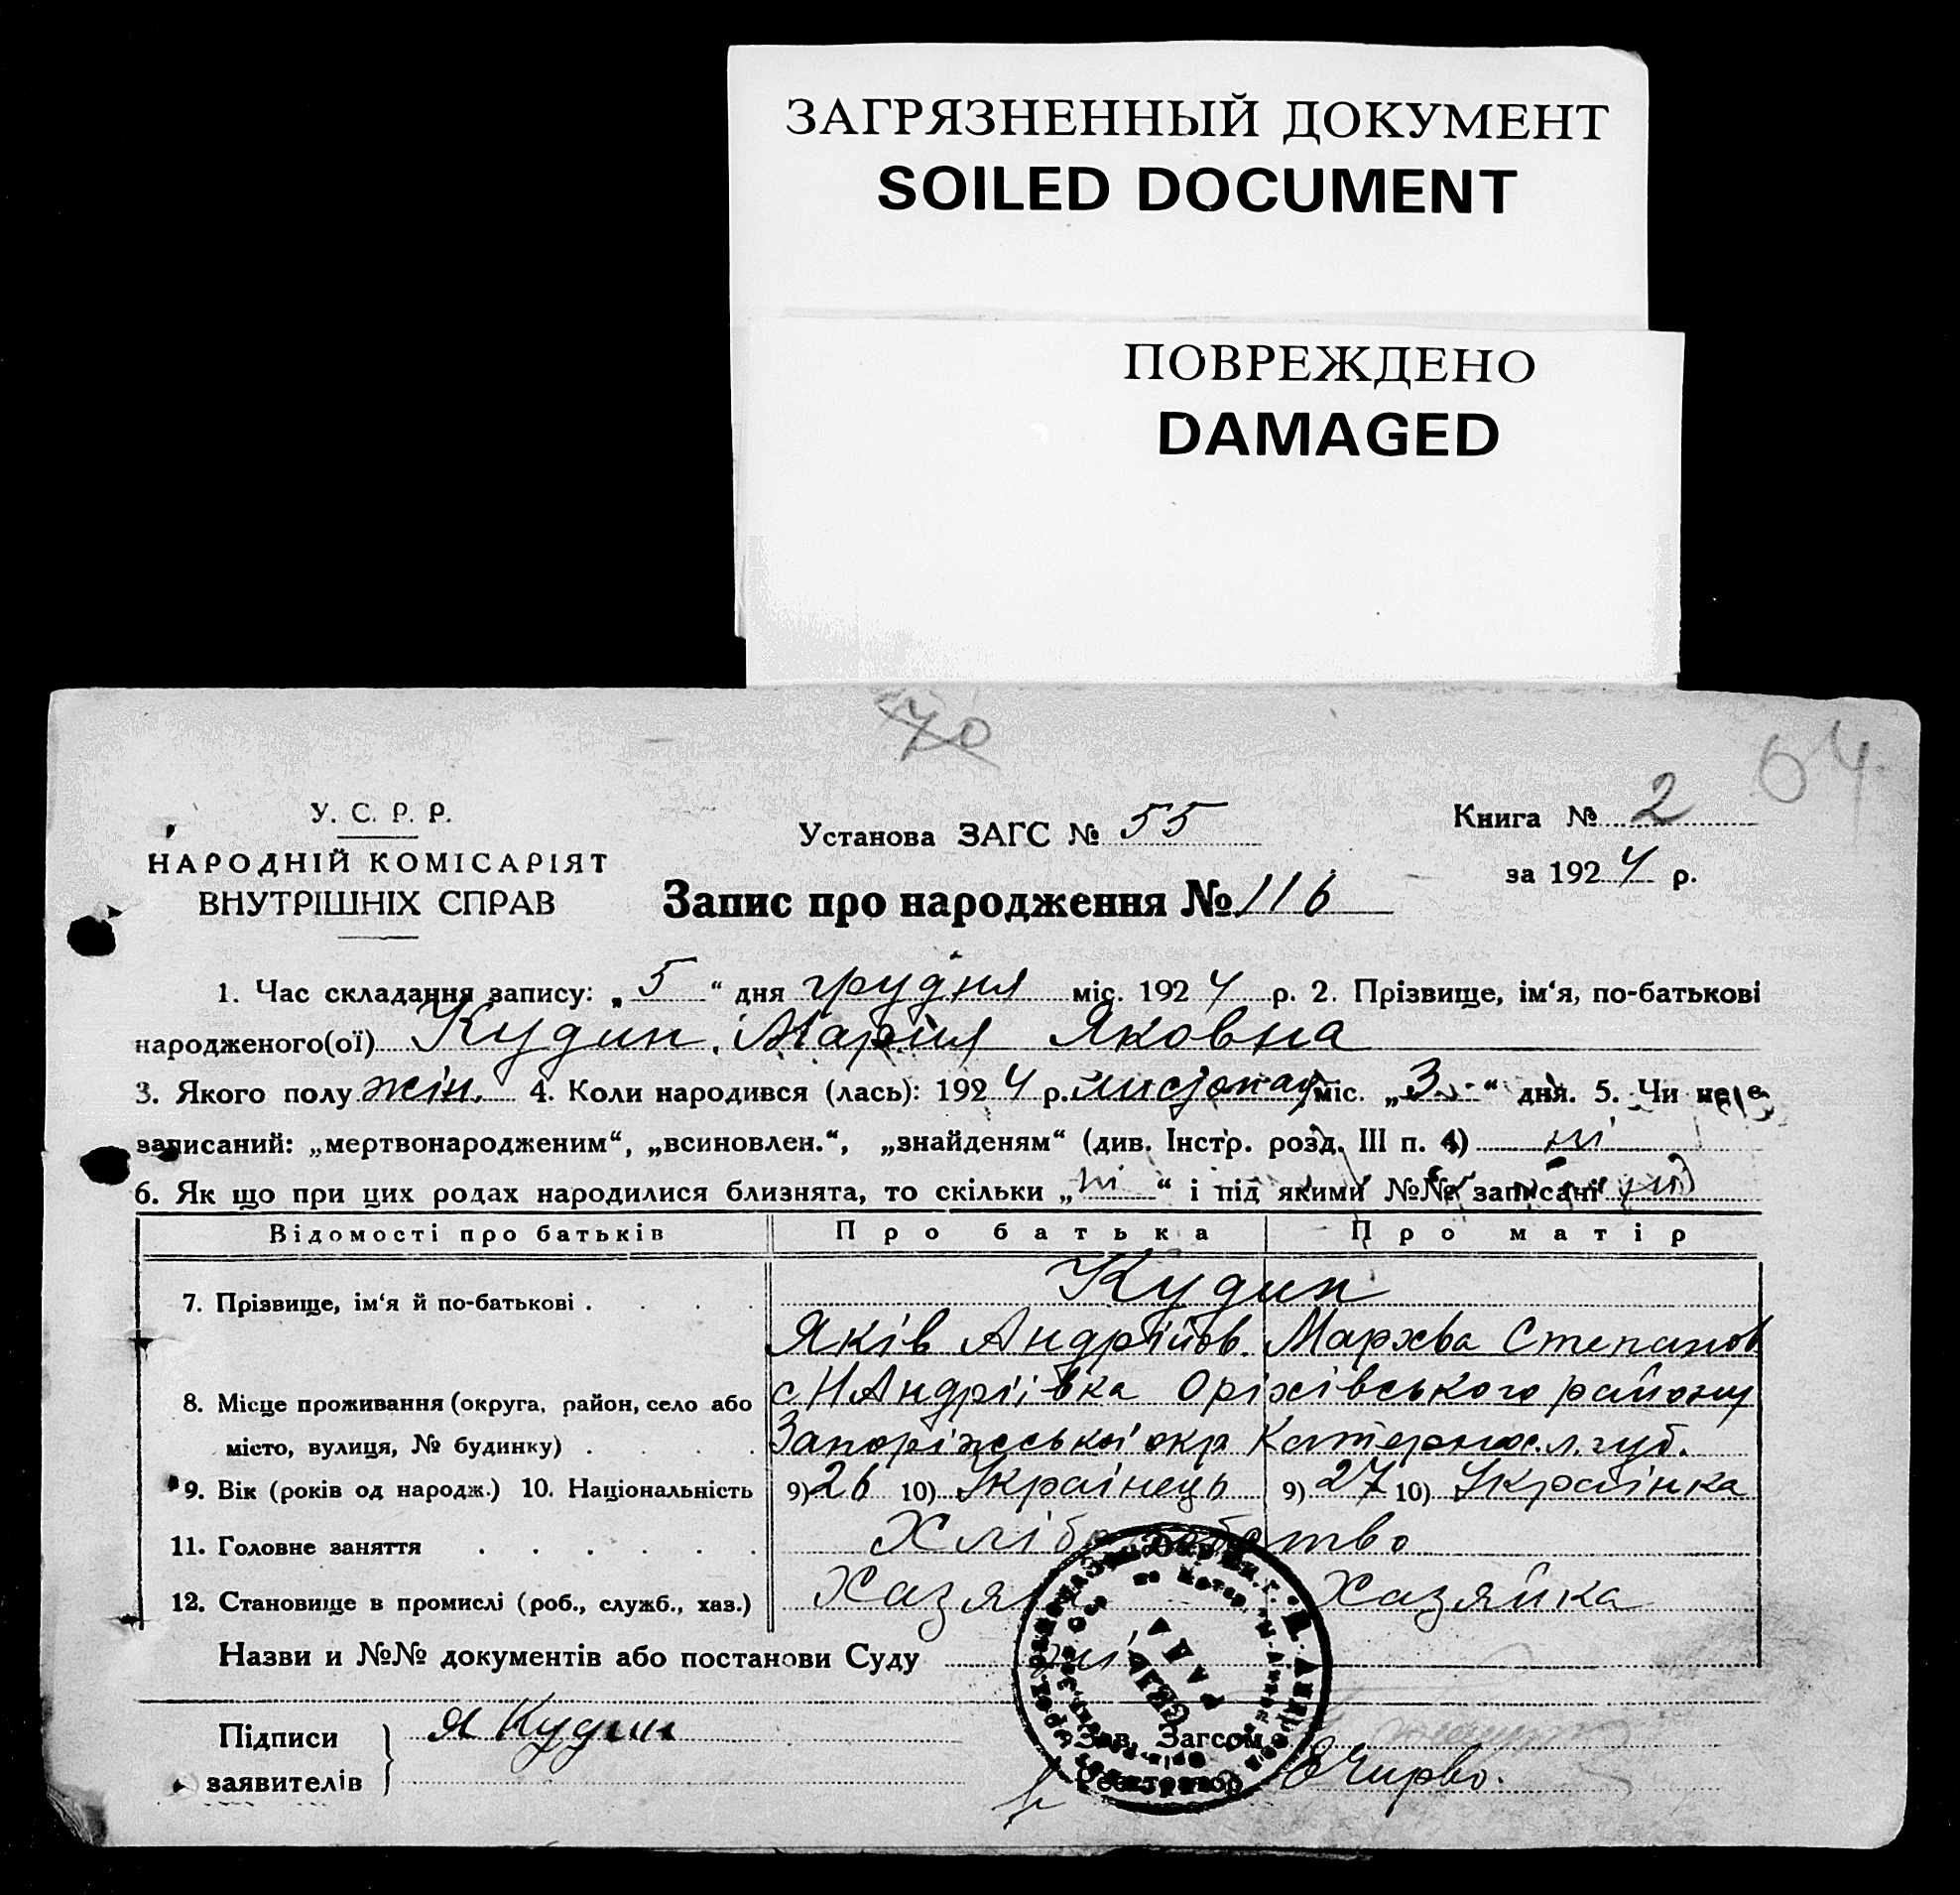 ЗАГРЯЗНЕННЫЙ ДОКУМЕНТ
SOILED DOCUMENT
ПОВРЕЖДЕНО
DAMAGED
70
64
У. С. Р. Р.
НАРОДНІЙ КОМІСАРІЯТ
ВНУТРІШНІХ СПРАВ
Установа ЗАГС № 55
Книга № 2
за 1924 р.
Запис про народження № 116
1. Час складання запису: „5“ дня грудня міс. 1924 р. 2. Прізвище, ім‘я, по-батькові
народженого(ої) Кудин Мария Яковна
3. Якого полу жін. 4. Коли народився (лась): 1924 р. листопад міс. „3“ дня. 5. Чи не є
записаний: „мертвонародженим“, „всиновлен.“, „знайденям“ (див. Інстр. розд. III п. 4) ні
6. Як що при цих родах народилися близнята, то скільки „ні“ і під якими №№ записані
Відомості про батьків Про батька Про матір
7. Прізвище, ім‘я й по-батькові . . . . Кудин
Яків Андрійов. Мархва Степанов
8. Місце проживання (округа, район, село або с Н Андріївка Оріхівського району
місто, вулиця, № будинку) . . . . Запоріжської окр Катеринос.л. губ.
9. Вік (років од народж.) 10. Національність 9) 26 10) Українець 9) 27 10) Українка
11. Головне заняття . . . . . . Хліборобство
12. Становище в промислі (роб., служб., хаз.) Хазяїн Хазяйка
Назви и №№ документів або постанови Суду ні
Підписи
заявителів
Я Кудин
Зав. Загсом
Реєстратор
РАДА